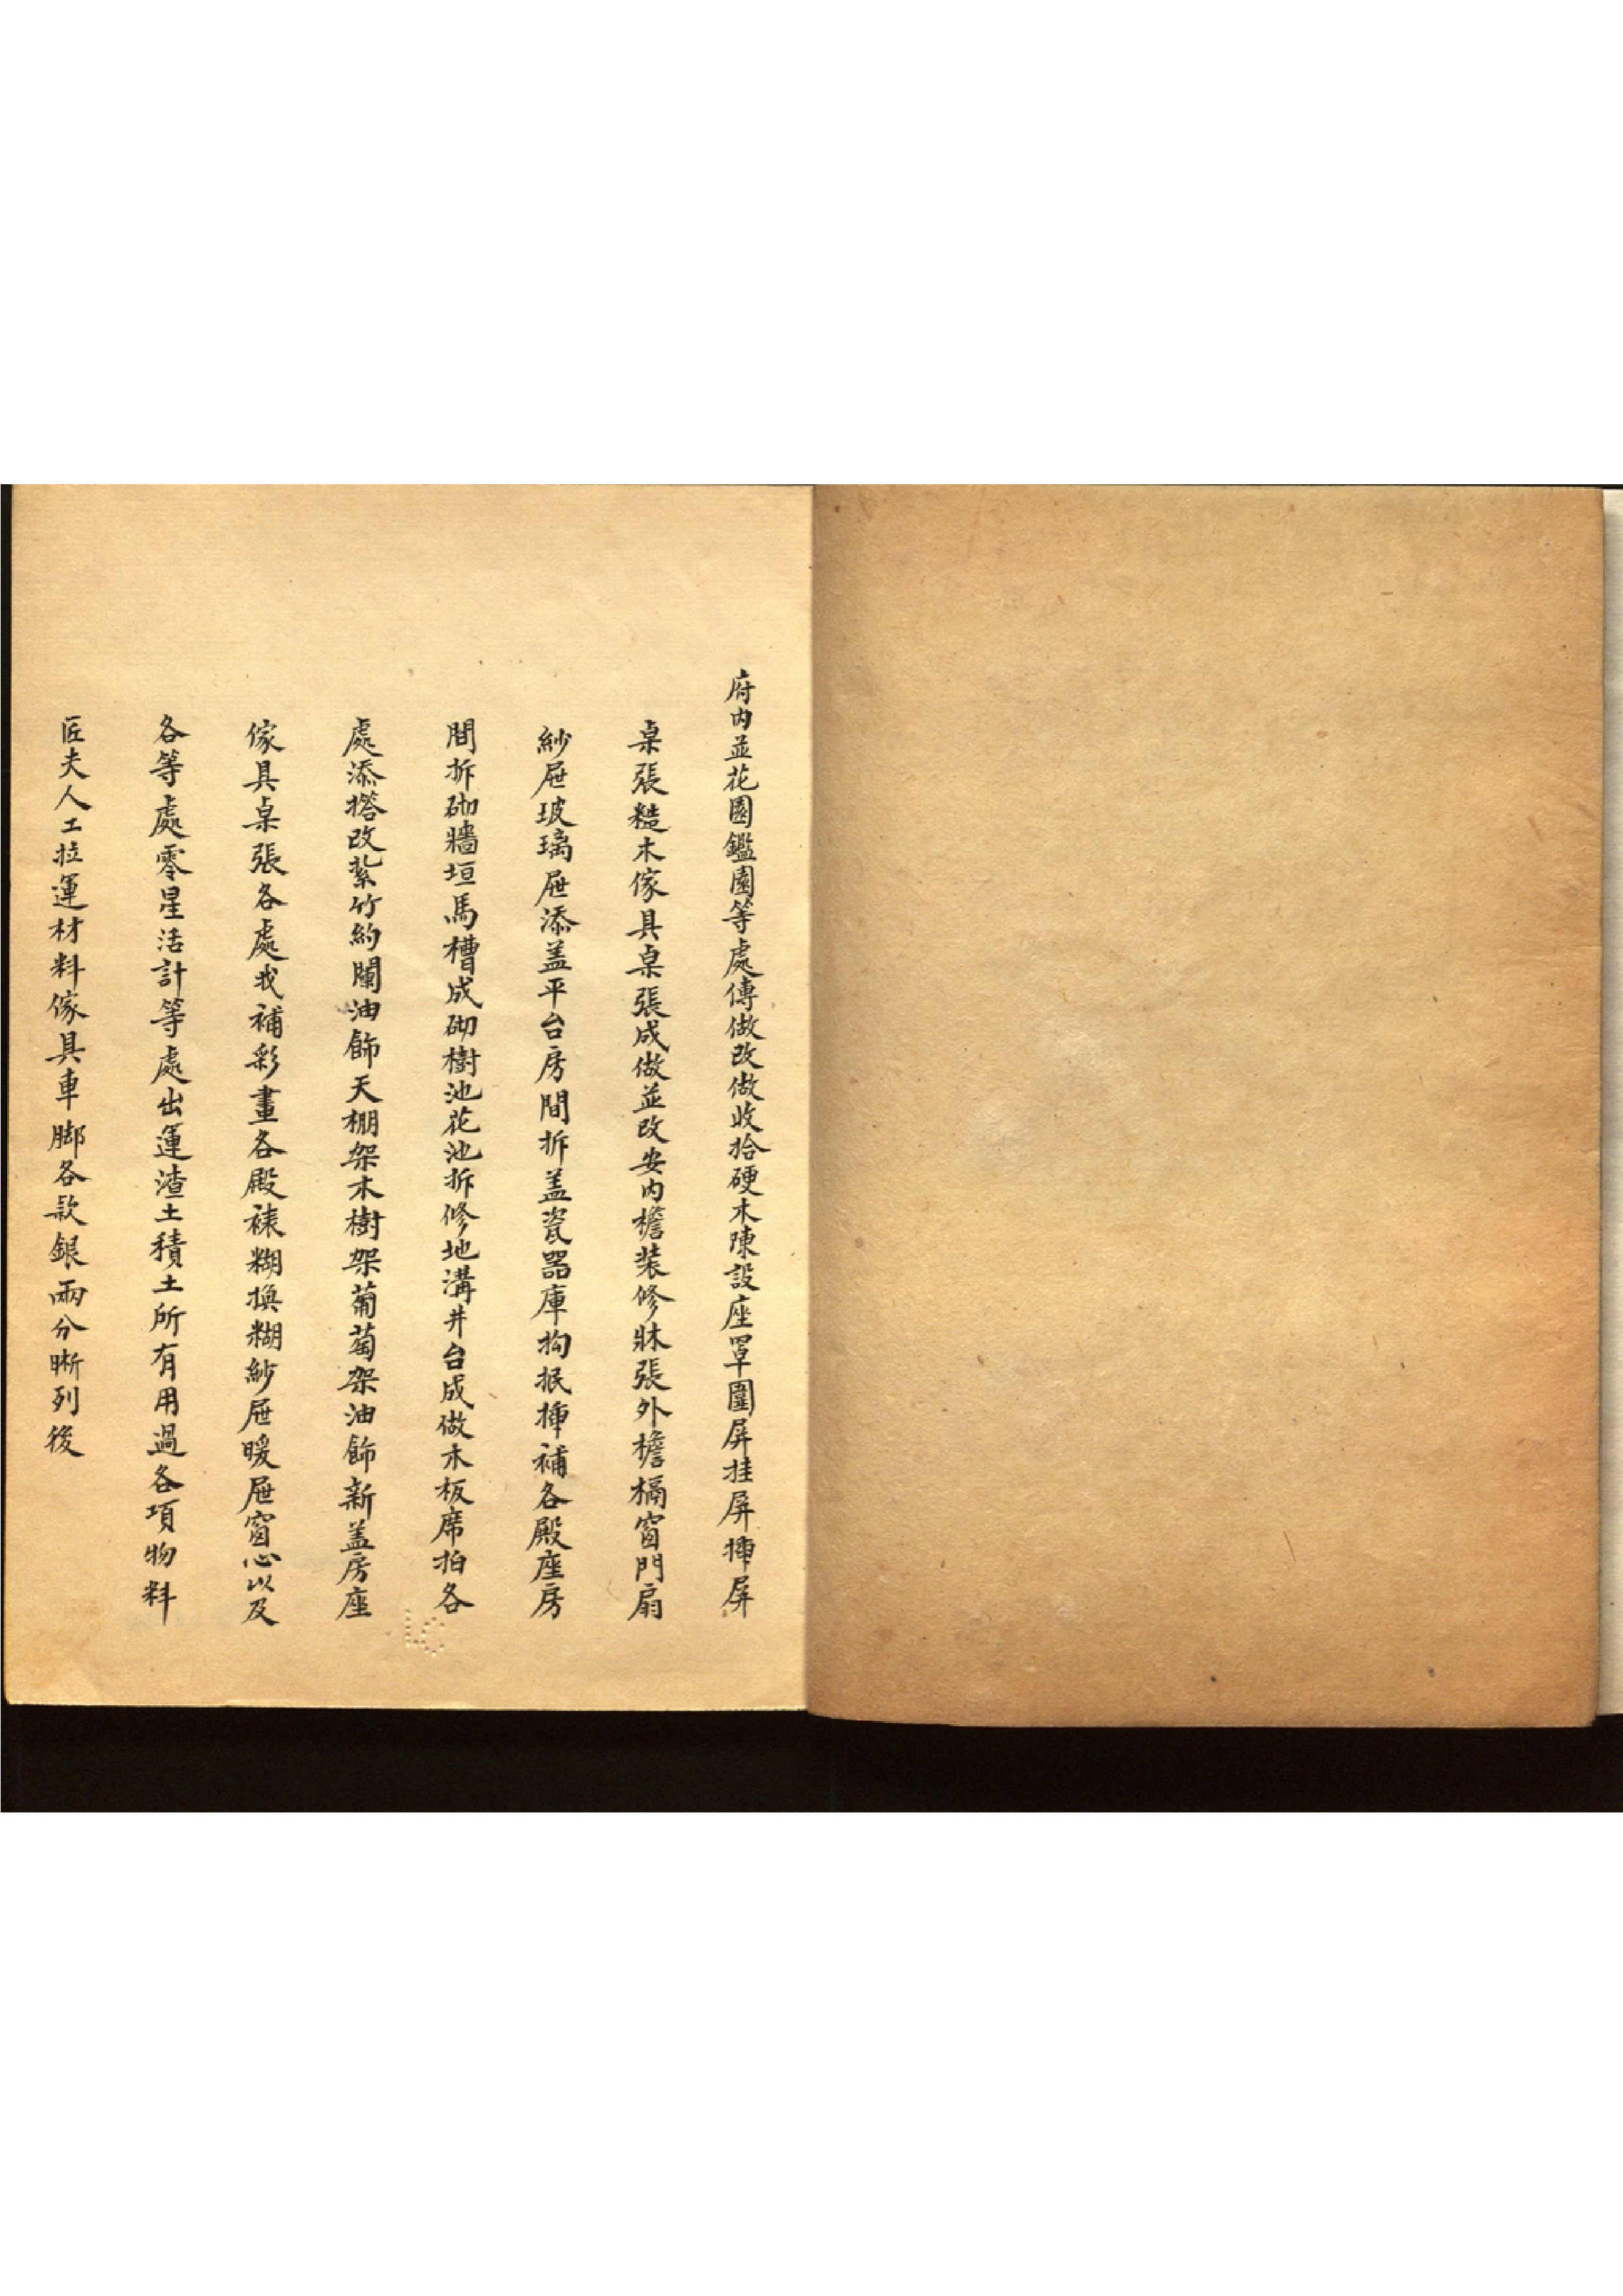 府内並花園鑑園等處傳做改做收拾硬木陳設座罩圍屏挂屏揷屏
桌張糙木傢具桌張成做並改安内檐装修牀張外檐槅窗門扇
紗屉玻璃屉添盖平台房間拆盖瓷器庫抅抿揷補各殿座房
間拆砌牆垣馬槽成砌樹池花池拆修地溝井台成做木板席拍各
處添搭改紮竹約闌油飾天棚架木樹架葡萄架油飾新盖房座
傢具桌張各處找補彩畫各殿裱糊換糊紗屉暖屉窗心以及
各等處零星活計等處出運渣土積土所有用過各項物料
匠夫人工拉運材料傢具車腳各款銀兩分晰列後